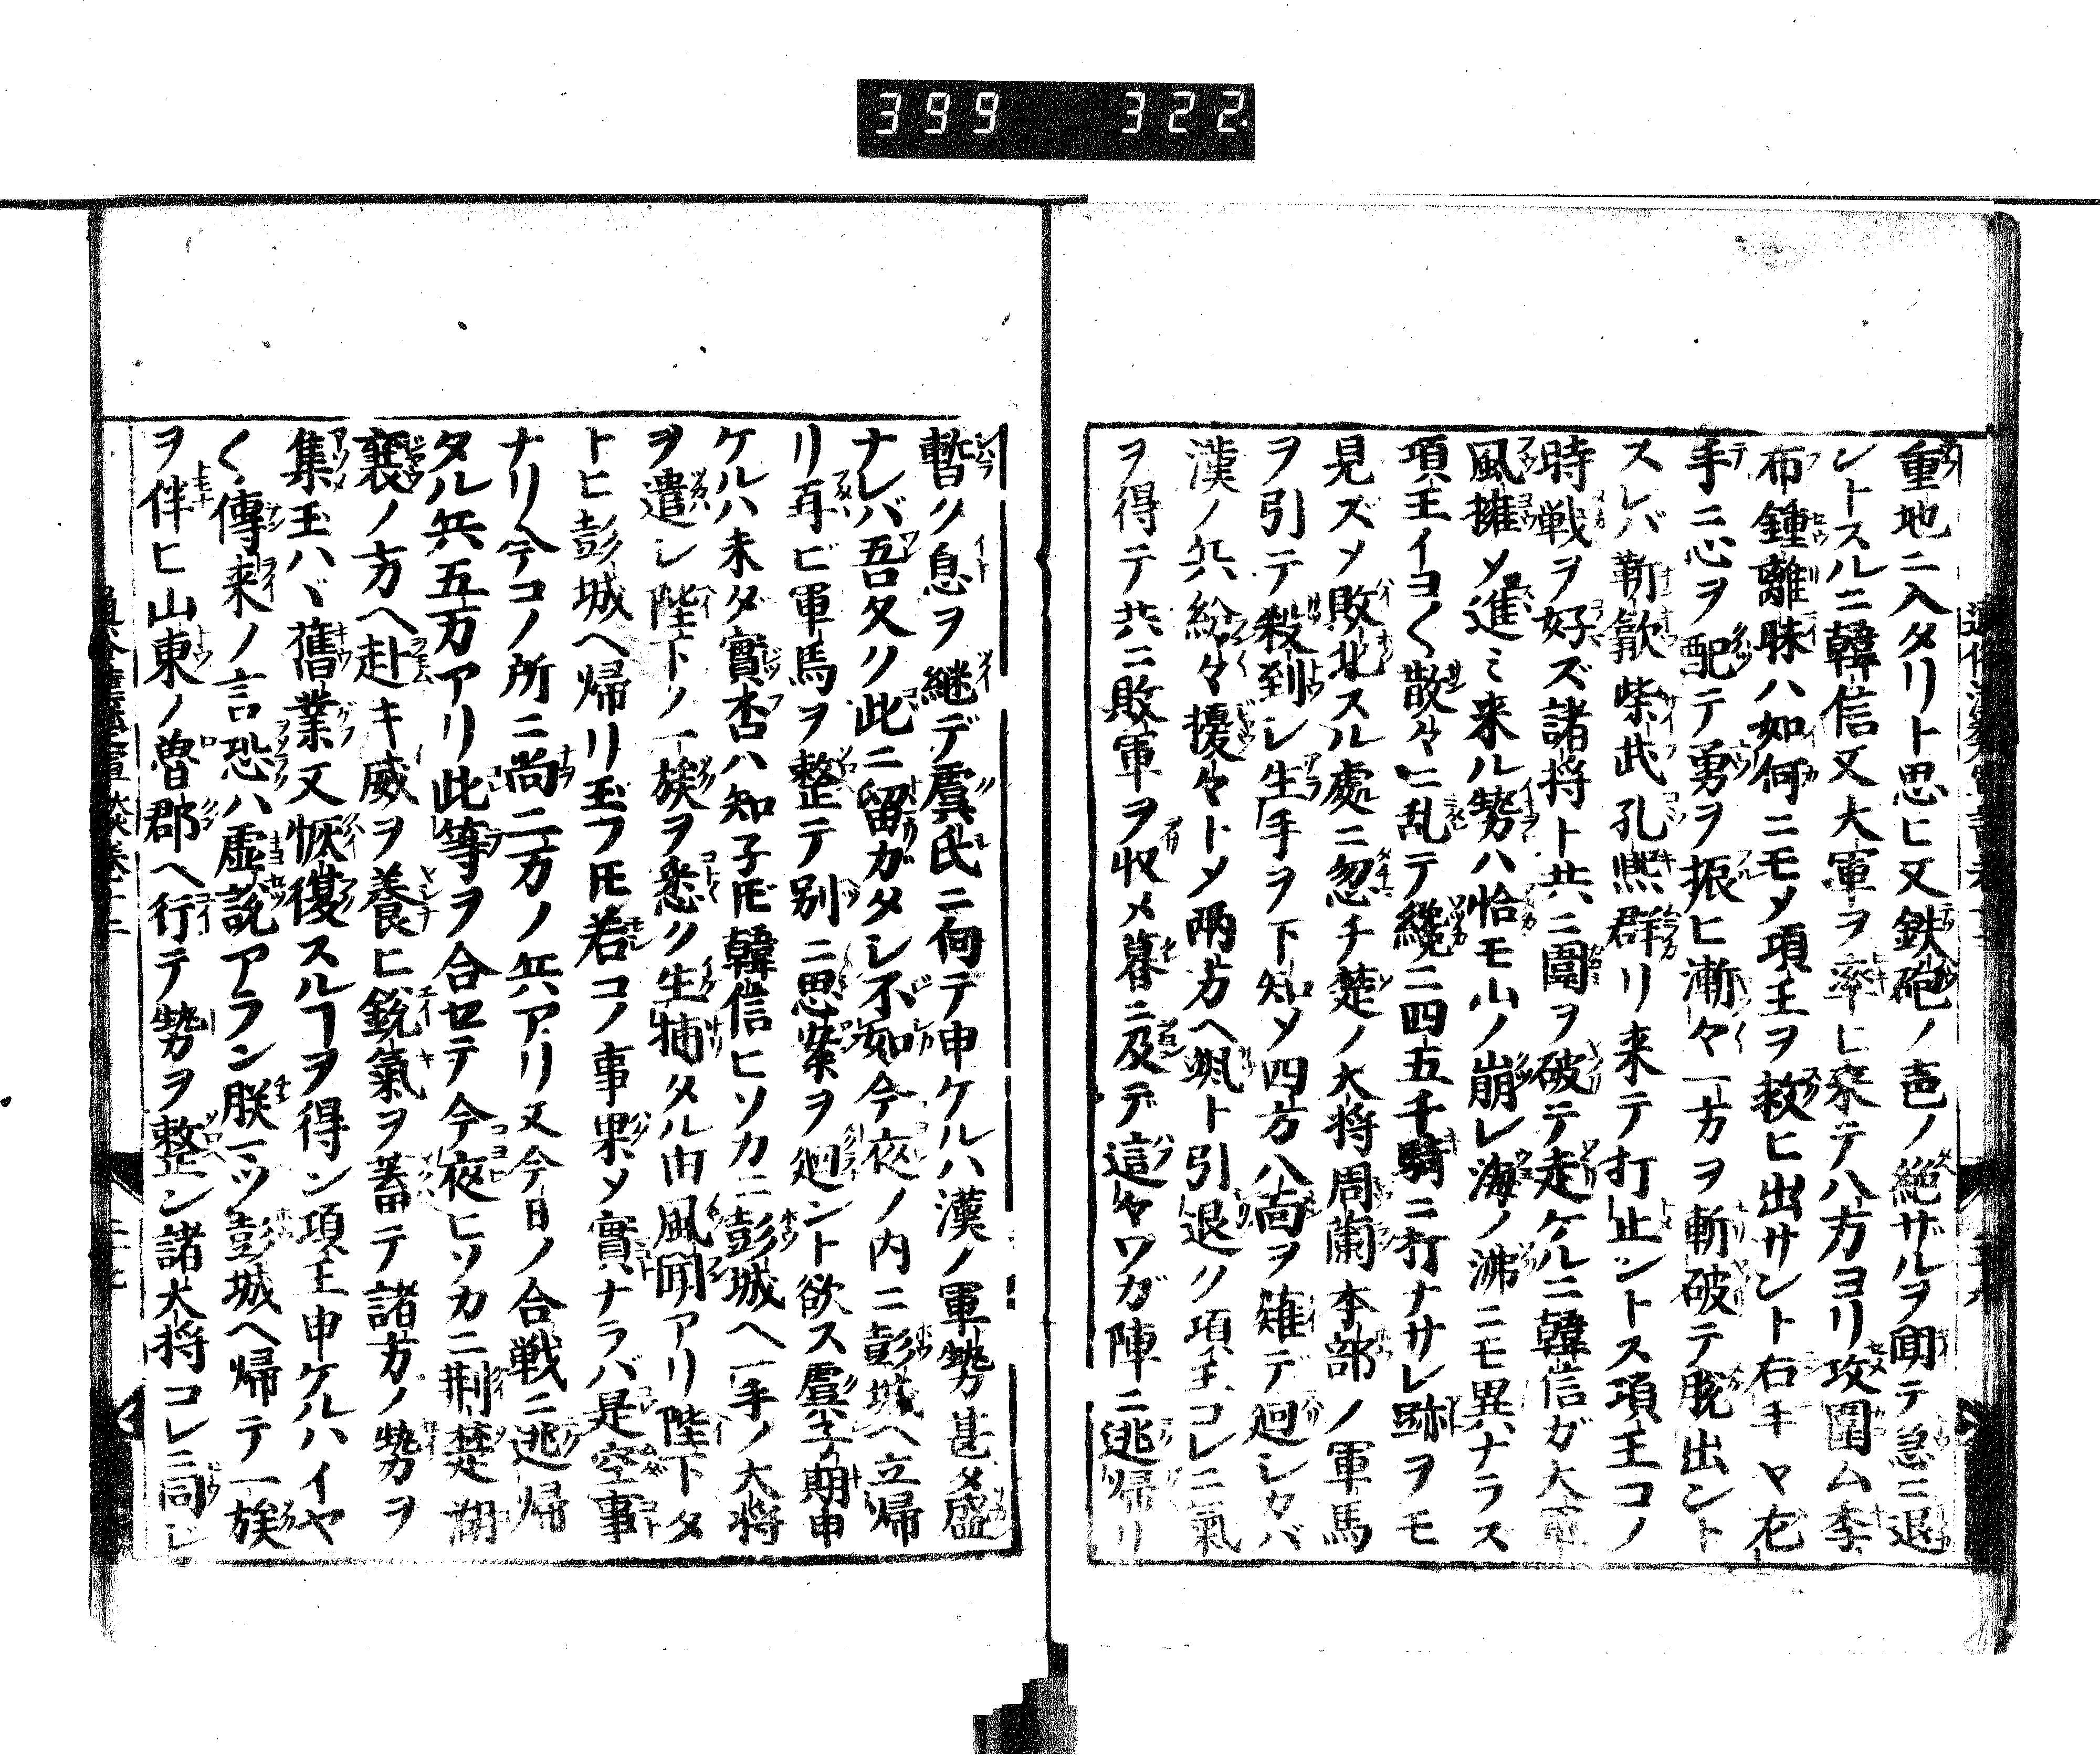 399 322
重地ニ入タリト思ヒ又鉄砲ノ声ノ絶ザルヲ聞テ急ニ退
ントスルニ韓信又大軍ヲ率ヒ来テ八方ヨリ攻囲ム季
布鍾離昧ハ如何ニモメ項王ヲ救ヒ出サント右キヤ左
手ニ心ヲ配テ勇ヲ振ヒ漸々一方ヲ斬破テ脱出ント
スレバ靳歙柴武孔熈群リ来テ打止ントス項王コノ
時戦ヲ好ズ諸将ト共ニ囲ヲ破テ走ケルニ韓信ガ大軍
風擁メ進ミ来ル勢ハ恰モ山ノ崩レ海ノ沸ニモ異ナラズ
項王イヨ〱散々ニ乱テ纔ニ四五千騎ニ打ナサレ跡ヲモ
見ズメ敗北スル處ニ忽チ楚ノ大将周蘭本部ノ軍馬
ヲ引テ殺到レ生手ヲ下知メ四方八面ヲ薙デ廻シカバ
漢ノ兵紛々擾々トメ両方ヘ颯ト引退ク項王コレニ氣
ヲ得テ共ニ敗軍ヲ収メ暮ニ及デ這々ワガ陣ニ逃帰リ
暫ク息ヲ継デ虞氏ニ向テ申ケルハ漢ノ軍勢甚メ盛
ナレバ吾久ク此ニ留ガタシ不如今夜ノ内ニ彭城ヘ立帰
リ再ビ軍馬ヲ整テ別ニ思案ヲ廻ント欲ス虞子期申
ケルハ未ダ實否ハ知子𪜈韓信ヒソカニ彭城ヘ一手ノ大将
ヲ遣シ陛下ノ一族ヲ悉ク生捕タル由風聞アリ陛下タ
トヒ彭城ヘ帰リ玉フ𪜈若コノ事果メ實ナラバ是空事
ナリ今コノ所ニ尚二万ノ兵アリ又今日ノ合戦ニ逃帰
タル兵五万アリ此等ヲ合セテ今夜ヒソカニ荊楚湖
襄ノ方ヘ赴キ威ヲ養ヒ鋭氣ヲ蓄テ諸方ノ勢ヲ
集玉ハヾ舊業又恢復スルヿヲ得ン項王申ケルハイヤ
〱傳来ノ言恐ハ虚説アラン朕一ツ彭城ヘ帰テ一族
ヲ伴ヒ山東ノ魯郡ヘ行テ勢ヲ整ン諸大将コレニ同じ